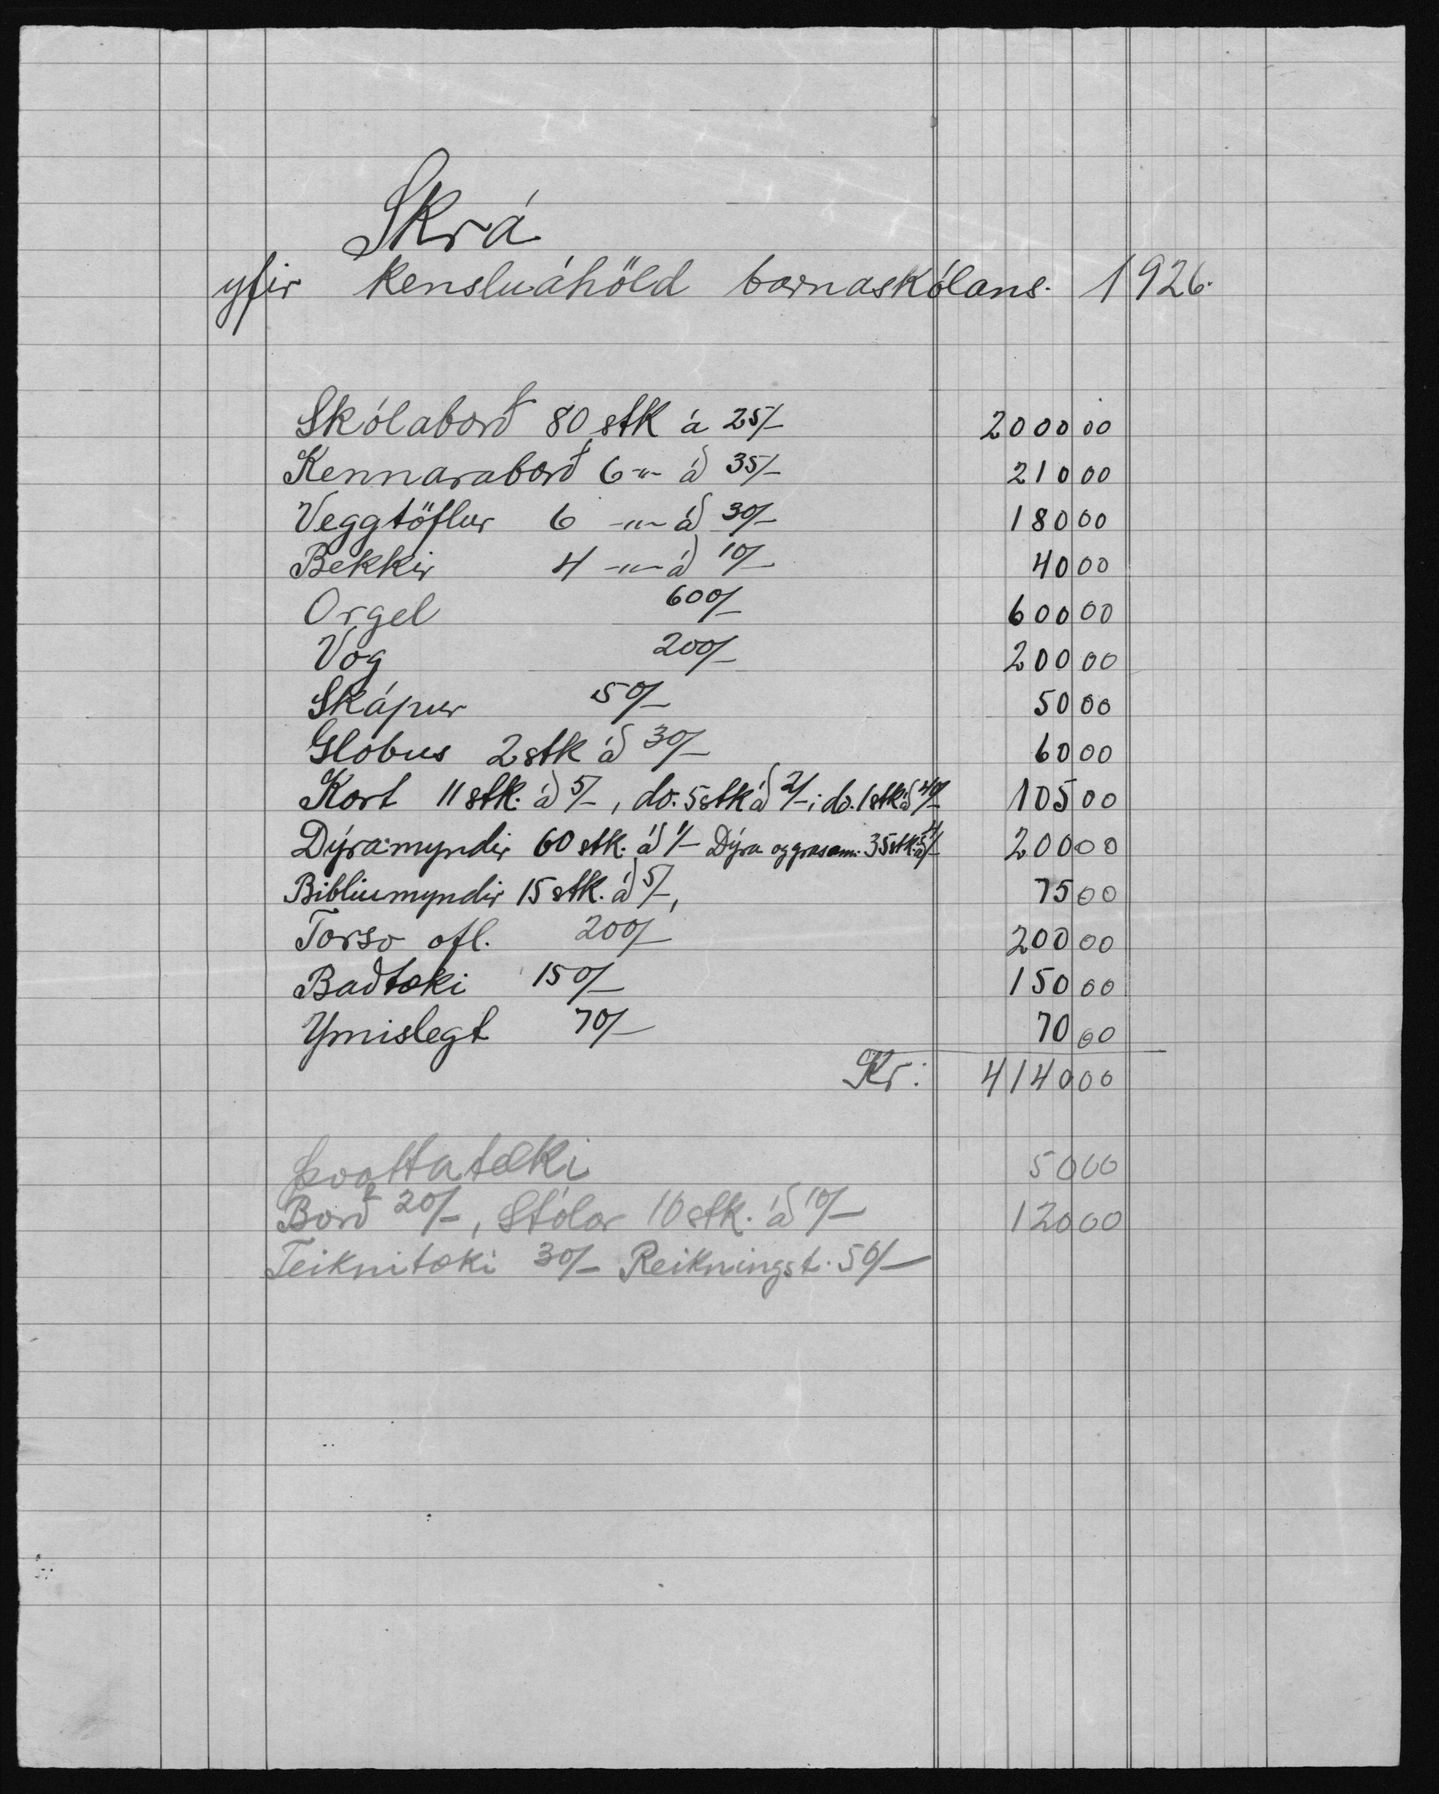 Skrá
yfir kensluáhöld barnaskólans. 1926.
Skólaborð 80 stk á 25/- 2000 00
Kennaraborð 6 -"- á 35/- 210 00
Veggtöflur 6 -"- á 30/- 180 00
Bekkir 4 -"- á 10/- 40 00
Orgel 600/- 600 00
Vog 200/- 200 00
Skápur 50/- 50 00
Globus 2 stk á 30/- 60 00
Kort 11 stk. á 5/-, do. 5 stk á 2/-; do. 1 stk á 40/- 105 00
Dýramyndir 60 stk. á 1/- Dýra og grasam. 35 stk. á 4/- 200 00
Bibliumyndir 15 stk. á 5/-, 75 00
Torso ofl. 200/- 200 00
Baðtæki 150/- 150 00
Ymislegt 70/- 70 00
Kr: 4140 00
Þvottatæki 50 00
Borð 20/-, Stólar 10 stk. á 10/- 120 00
Teiknitæki 30/- Reikningst. 50/-